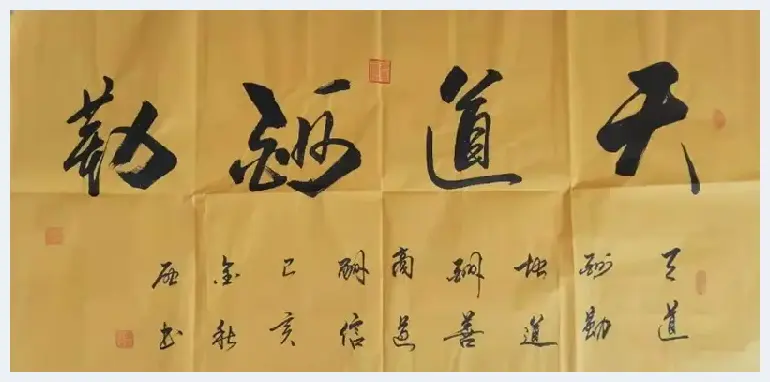 天道酬勤
天道
酬勤
地道
酬善
商道
酬信
己亥
金秋
书